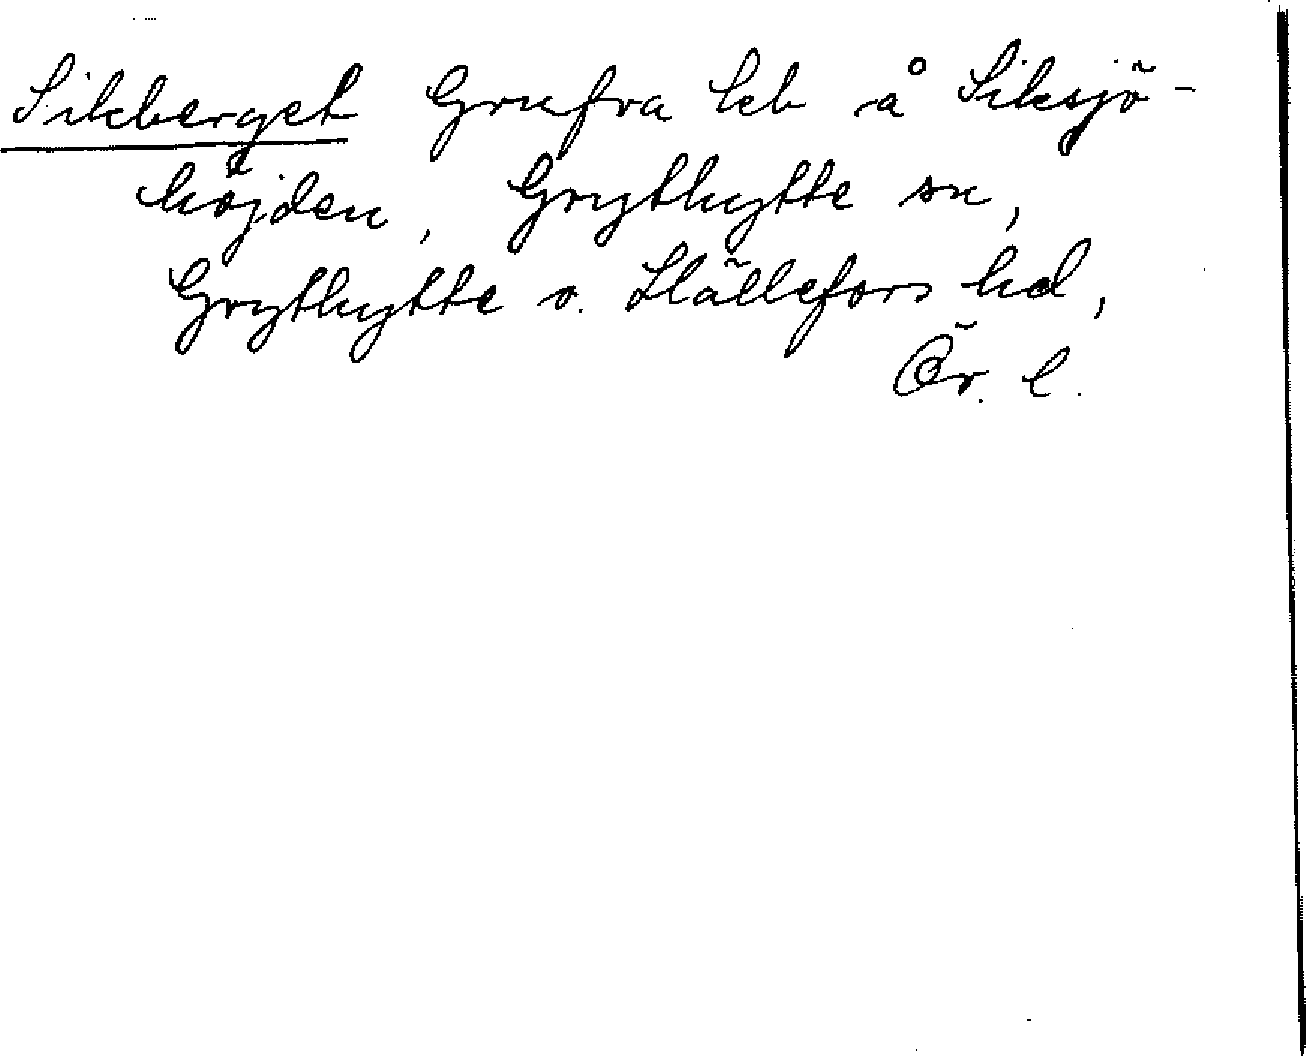 Sikberget Grufva kb å Siksjö-
höjden, Grythytte sn,
Grythytte o. Hällefors hd,
Ör. l.